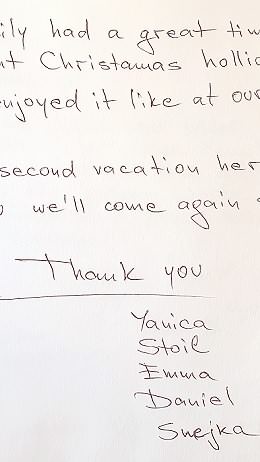 ily had a great tim
nt Christamas hollid
enjoyed it like at our
second vacation her
we'll come again
Thank you
Yanica
Stoil
Emma
Daniel
Snejka